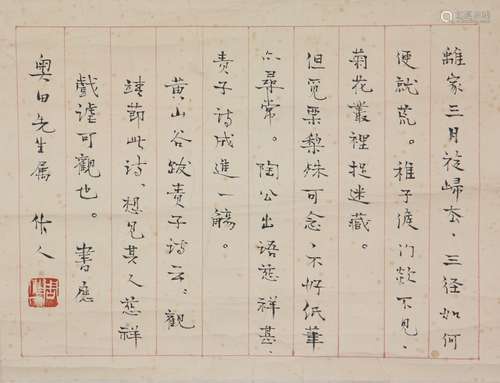 離家三月旋歸去、三径如何
便就荒。稚子候门欻不見、
菊花叢裡捉迷藏。
但覓栗梨殊可念、不好纸筆
亦尋常。陶公出語慈祥甚、
責子詩成進一觴。
黄山谷跋責子詩云、觀
靖節此詩、想見其人慈祥
戲謔可觀也。書應
奥田先生属 作人